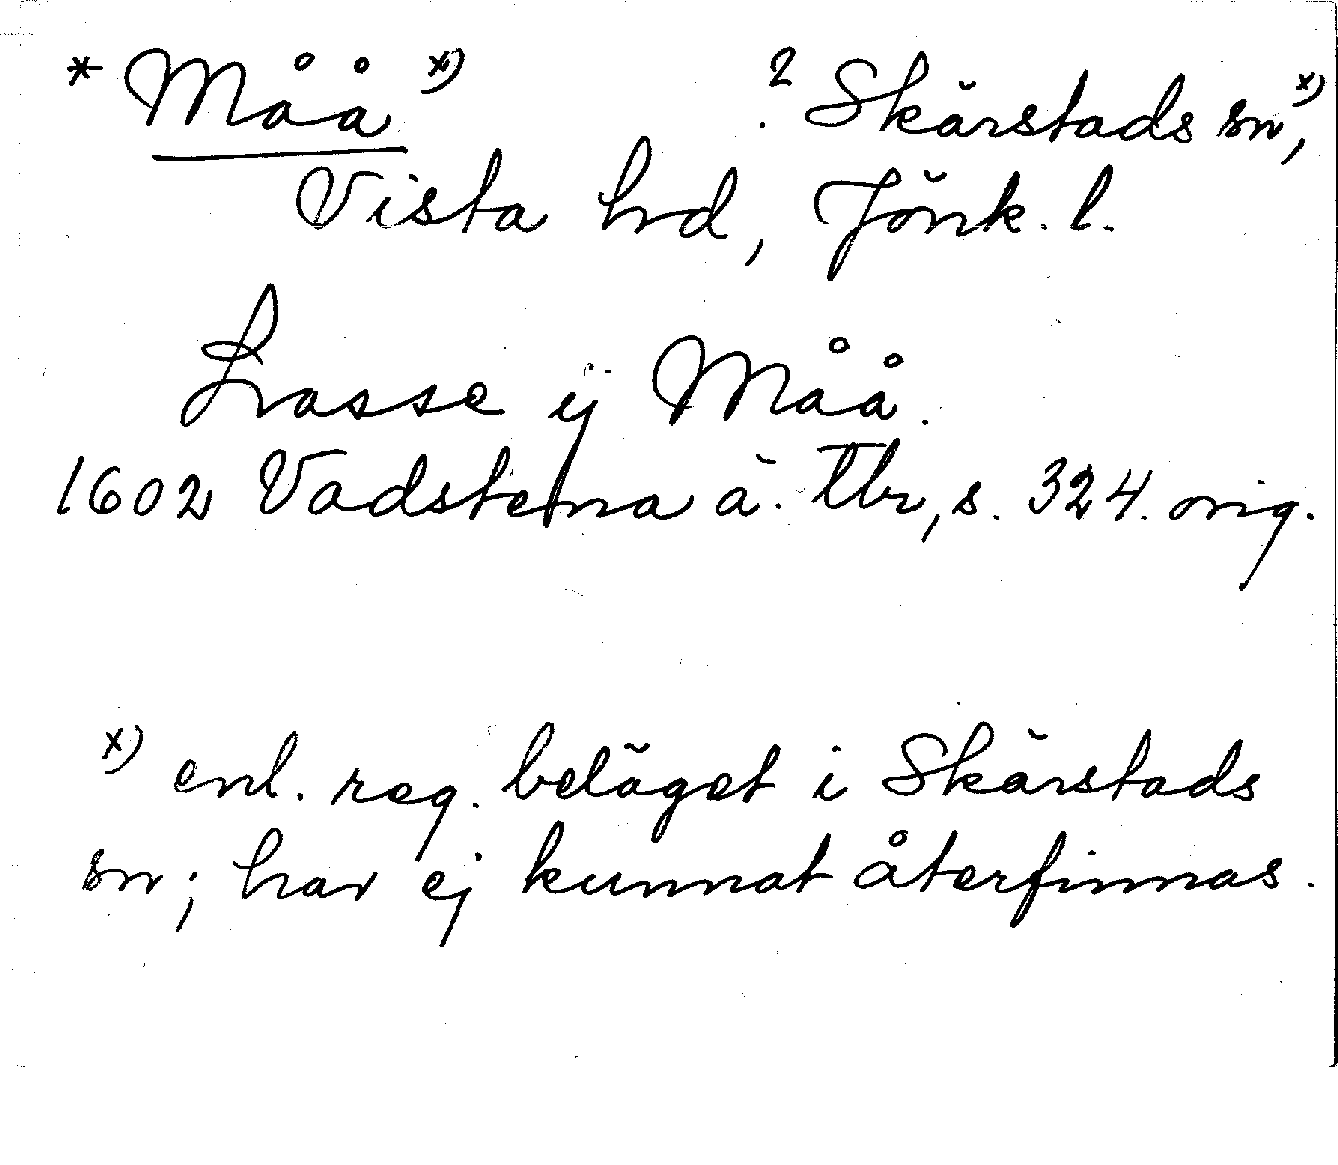 * Måå x) ? Skärstads sn x),
Vista hrd, Jönk. l.
Lasse ÿ Måå.
1602 Vadstena ä. Tbr, s. 324. orig.
x) enl. reg. beläget i Skärstads
sn; har ej kunnat återfinnas.